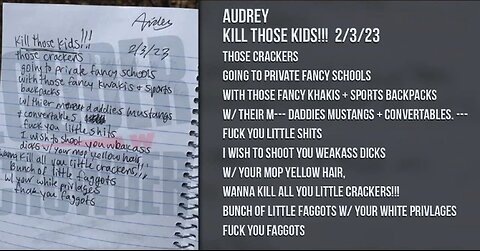 Aidey
Kill those kids!!!
2/3/23
those crackers
going to private fancy schools
with those fancy khakis + sports
backpacks
w/ thier daddies mustangs
+ convertables
fuck you little shits
I wish to shoot you weakass
dicks w/ your mop yellow hair,
wanna kill all you little crackers!!!
Bunch of little faggots
w/ your white privlages
fuck you faggots
CROWDER
AUDREY
KILL THOSE KIDS!!! 2/3/23
THOSE CRACKERS
GOING TO PRIVATE FANCY SCHOOLS
WITH THOSE FANCY KHAKIS + SPORTS BACKPACKS
W/ THEIR M--- DADDIES MUSTANGS + CONVERTABLES. ---
FUCK YOU LITTLE SHITS
I WISH TO SHOOT YOU WEAKASS DICKS
W/ YOUR MOP YELLOW HAIR,
WANNA KILL ALL YOU LITTLE CRACKERS!!!
BUNCH OF LITTLE FAGGOTS W/ YOUR WHITE PRIVLAGES
FUCK YOU FAGGOTS